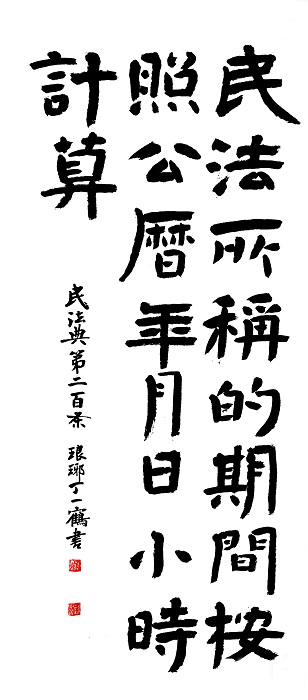 民法所稱的期間按
照公曆年月日小時
計算
民法典第二百条 琅琊丁一鶴書